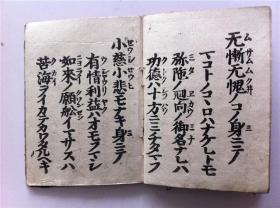 无慚无愧ノコノ身ニテ
マコトノコヽロハナケレトモ
弥陀ノ廻向ノ御名ナレハ
功徳ハ十方ニミチタマフ
小慈小悲モナキ身ニテ
有情利益ハオモフマシ
如來ノ願舩イマサスハ
苦海ヲイカテカワタルヘキ